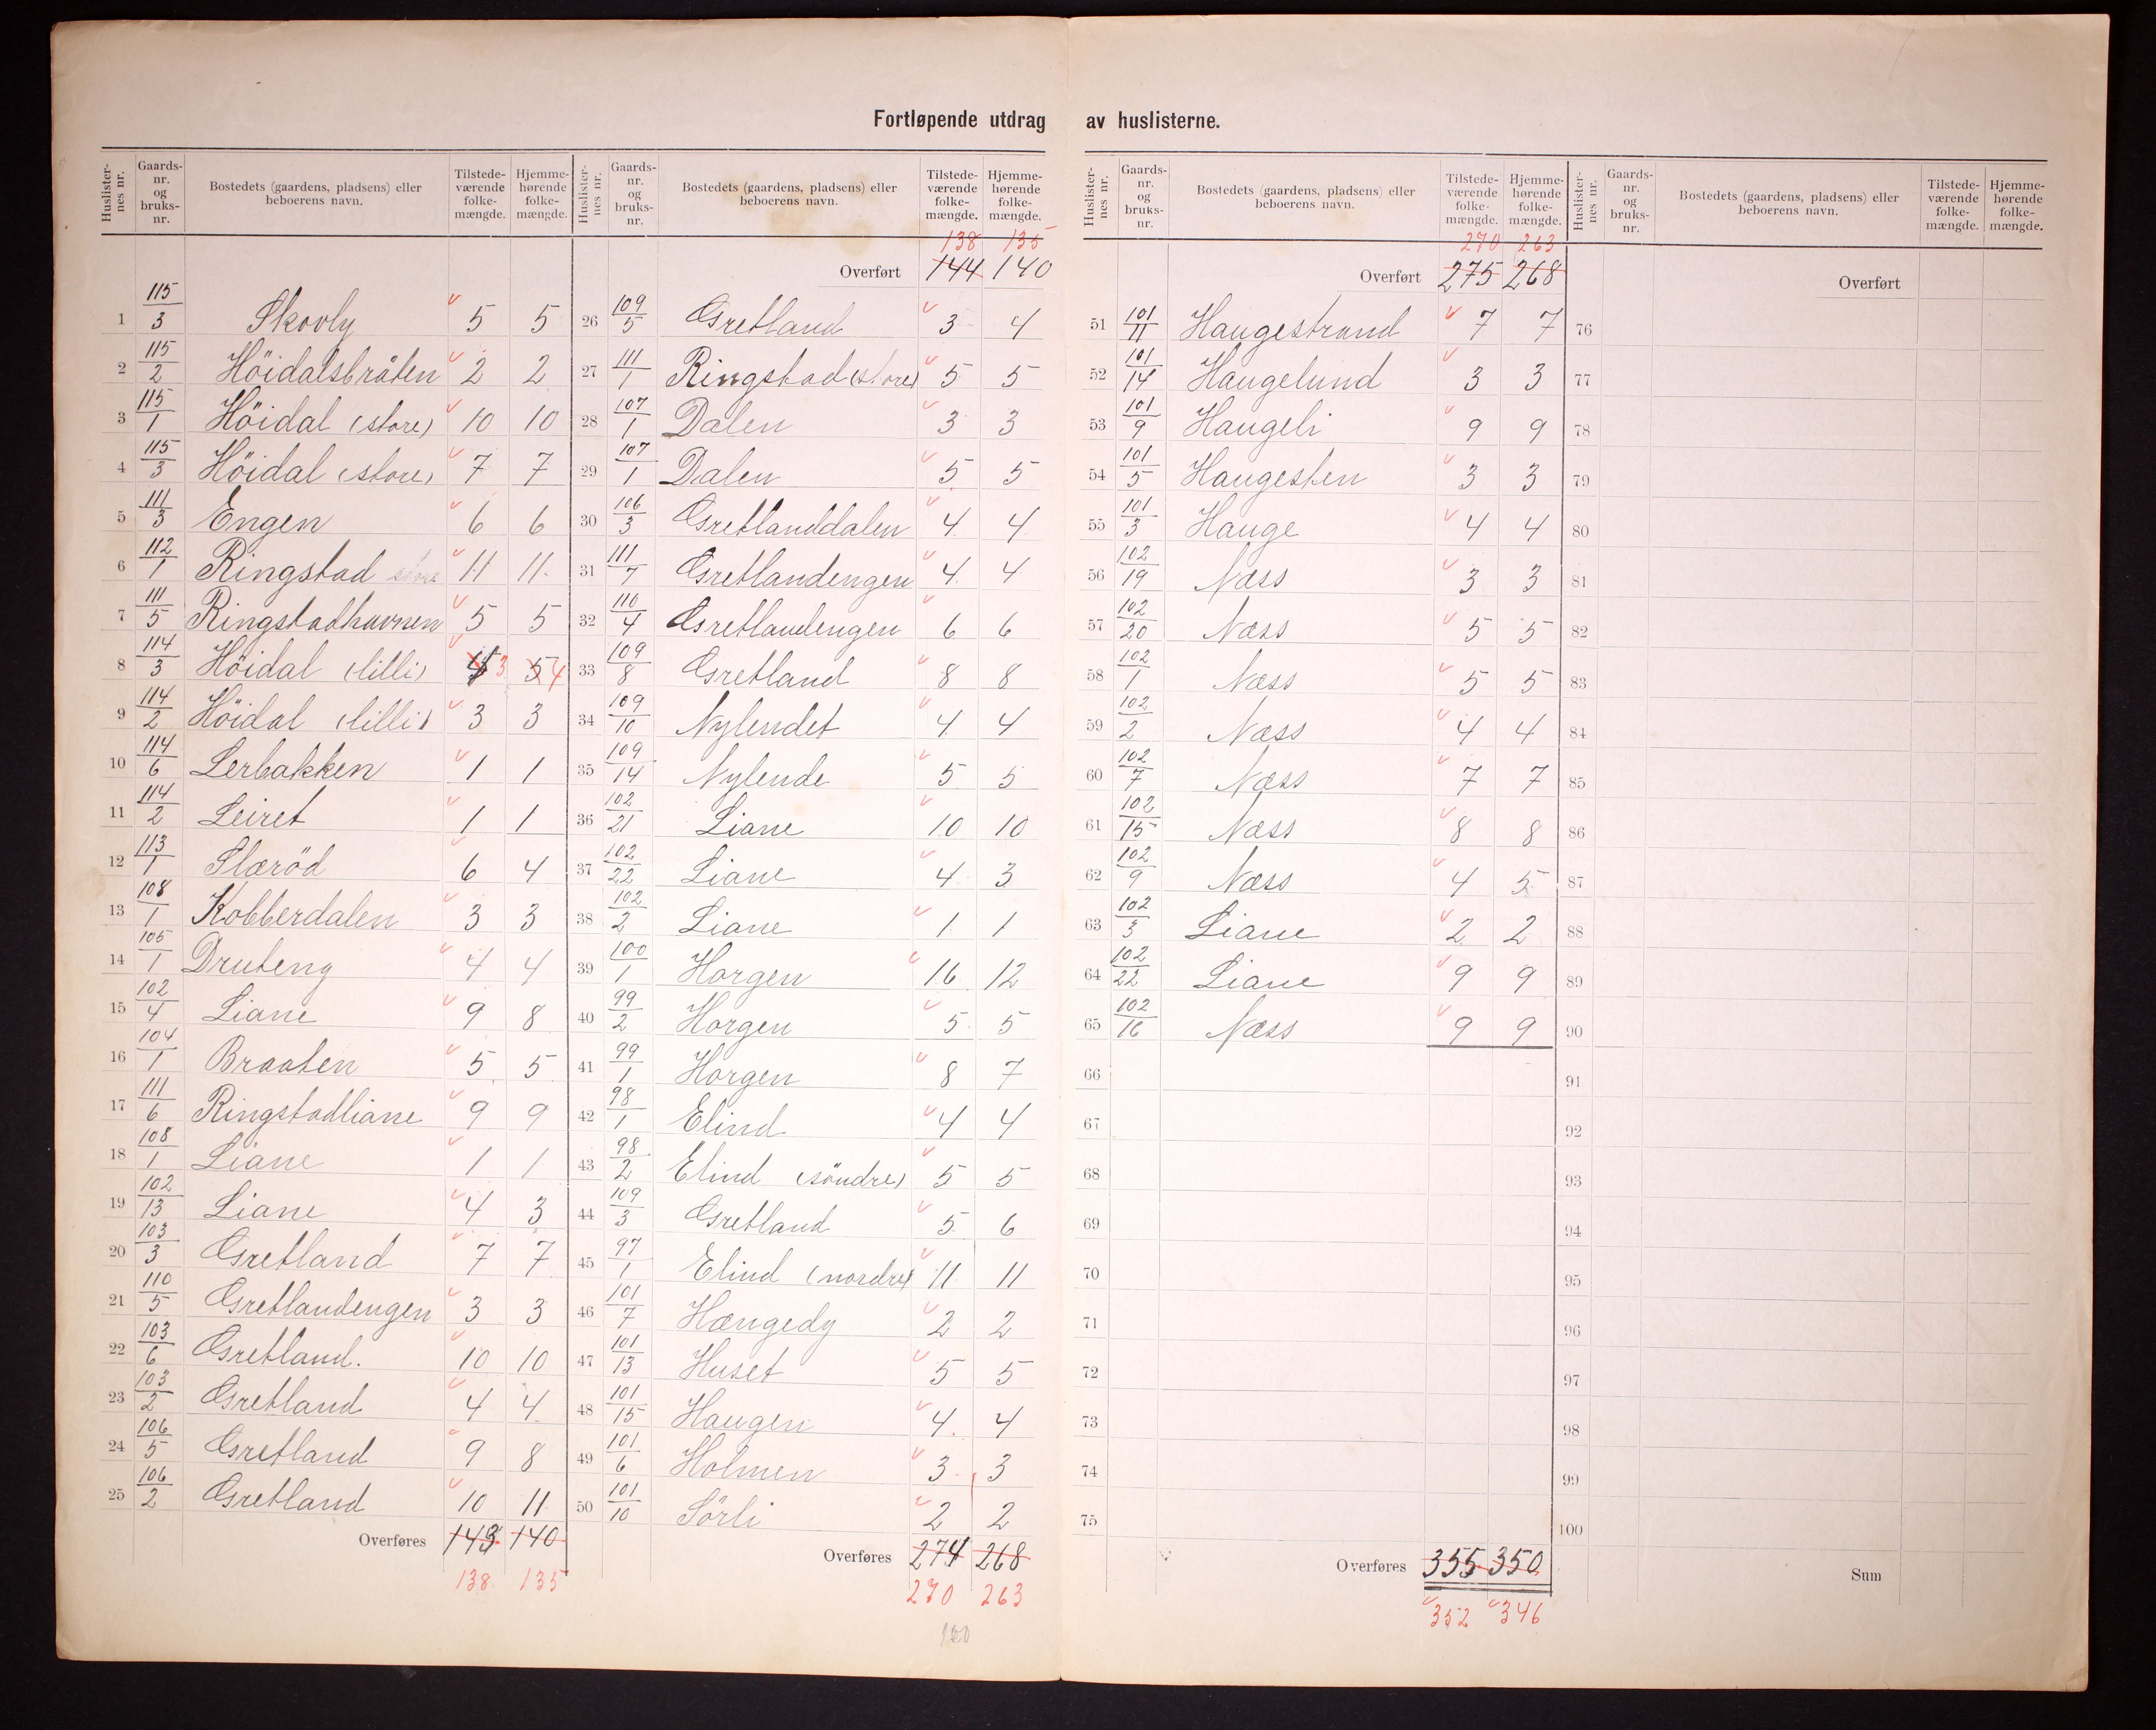 Fortløpende utdrag av huslisterne.
Huslister-nes nr. Gaards-nr. og bruks-nr. Bostedets (gaardens, pladsens) eller beboerens navn. Tilstede-værende folke-mængde. Hjemme-hørende folke-mængde.
1 115/3 Skovly 5 5
2 115/2 Höidalsbråten 2 2
3 115/1 Höidal (store) 10 10
4 115/3 Höidal (store) 7 7
5 111/3 Engen 6 6
6 112/1 Ringstad store 11 11
7 111/5 Ringstadhavnen 5 5
8 114/3 Höidal (lilli) 3 5 4
9 114/2 Höidal (lilli) 3 3
10 114/6 Lerbakken 1 1
11 114/2 Leiret 1 1
12 113/1 Slæröd 6 4
13 108/1 Kobberdalen 3 3
14 105/1 Druteng 4 4
15 102/4 Liane 9 8
16 104/1 Braaten 5 5
17 111/6 Ringstadliane 9 9
18 108/1 Liane 1 1
19 102/13 Liane 4 3
20 103/3 Gretland 7 7
21 110/5 Gretlandengen 3 3
22 103/6 Gretland. 10 10
23 103/2 Gretland 4 4
24 106/5 Gretland 9 8
25 106/2 Gretland 10 11
Overføres 143 140
138 135
Huslister-nes nr. Gaards-nr. og bruks-nr. Bostedets (gaardens, pladsens) eller beboerens navn. Tilstede-værende folke-mængde. Hjemme-hørende folke-mængde.
138 135
Overført 144 140
26 109/5 Gretland 3 4
27 111/1 Ringstad (store) 5 5
28 107/1 Dalen 3 3
29 107/1 Dalen 5 5
30 106/3 Gretlanddalen 4 4
31 111/7 Gretlandengen 4 4
32 110/4 Gretlandengen 6 6
33 109/8 Gretland 8 8
34 109/10 Nylendet 4 4
35 109/14 Nylende 5 5
36 102/21 Liane 10 10
37 102/22 Liane 4 3
38 102/2 Liane 1 1
39 100/1 Horgen 16 12
40 99/2 Horgen 5 5
41 99/1 Horgen 8 7
42 98/1 Elind 4 4
43 98/2 Elind (söndre) 5 5
44 109/3 Gretland 5 6
45 97/1 Elind (nordre) 11 11
46 101/7 Hængedy 2 2
47 101/13 Huset 5 5
48 101/15 Haugen 4 4
49 101/6 Holmen 3 3
50 101/10 Sörli 2 2
Overføres 274 268
270 263
Huslister-nes nr. Gaards-nr. og bruks-nr. Bostedets (gaardens, pladsens) eller beboerens navn. Tilstede-værende folke-mængde. Hjemme-hørende folke-mængde.
270 263
Overført 275 268
51 101/11 Haugestrand 7 7
52 101/14 Haugelund 3 3
53 101/9 Haugeli 9 9
54 101/5 Haugesten 3 3
55 101/3 Hauge 4 4
56 102/19 Næss 3 3
57 102/20 Næss 5 5
58 102/1 Næss 5 5
59 102/2 Næss 4 4
60 102/7 Næss 7 7
61 102/15 Næss 8 8
62 102/9 Næss 4 5
63 102/3 Liane 2 2
64 102/22 Liane 9 9
65 102/16 Næss 9 9
66
67
68
69
70
71
72
73
74
75
Overføres 355 350
352 346
Huslister-nes nr. Gaards-nr. og bruks-nr. Bostedets (gaardens, pladsens) eller beboerens navn. Tilstede-værende folke-mængde. Hjemme-hørende folke-mængde.
Overført
76
77
78
79
80
81
82
83
84
85
86
87
88
89
90
91
92
93
94
95
96
97
98
99
100
Sum